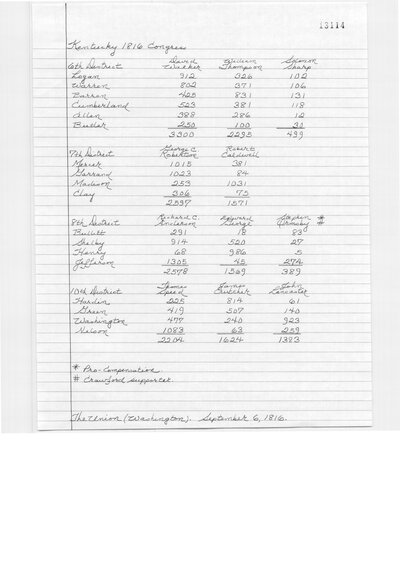 13114
Kentucky 1816 Congress
6th District David Walker William Thompson Solomon Sharp
Logan 912 326 102
Warren 802 371 106
Barren 425 831 131
Cumberland 523 381 118
Allen 388 286 12
Butler 250 100 30
3300 2295 499
7th District George C. Robertson Robert Caldwell
Mercer 1015 381
Garrard 1023 84
Madison 253 1031
Clay 306 75
2597 1571
8th District Richard C. Anderson Edward George Stephen Ormsby * #
Bullitt 291 18 83
Shelby 914 520 27
Henry 68 986 5
Jefferson 1305 45 274
2578 1569 389
10th District Thomas Speed James Crutcher John Lancaster
Hardin 225 814 61
Green 419 507 140
Washington 477 240 923
Nelson 1083 63 259
2204 1624 1383
* Pro-Compensation
# Crawford supporter.
The Union (Washington). September 6, 1816.